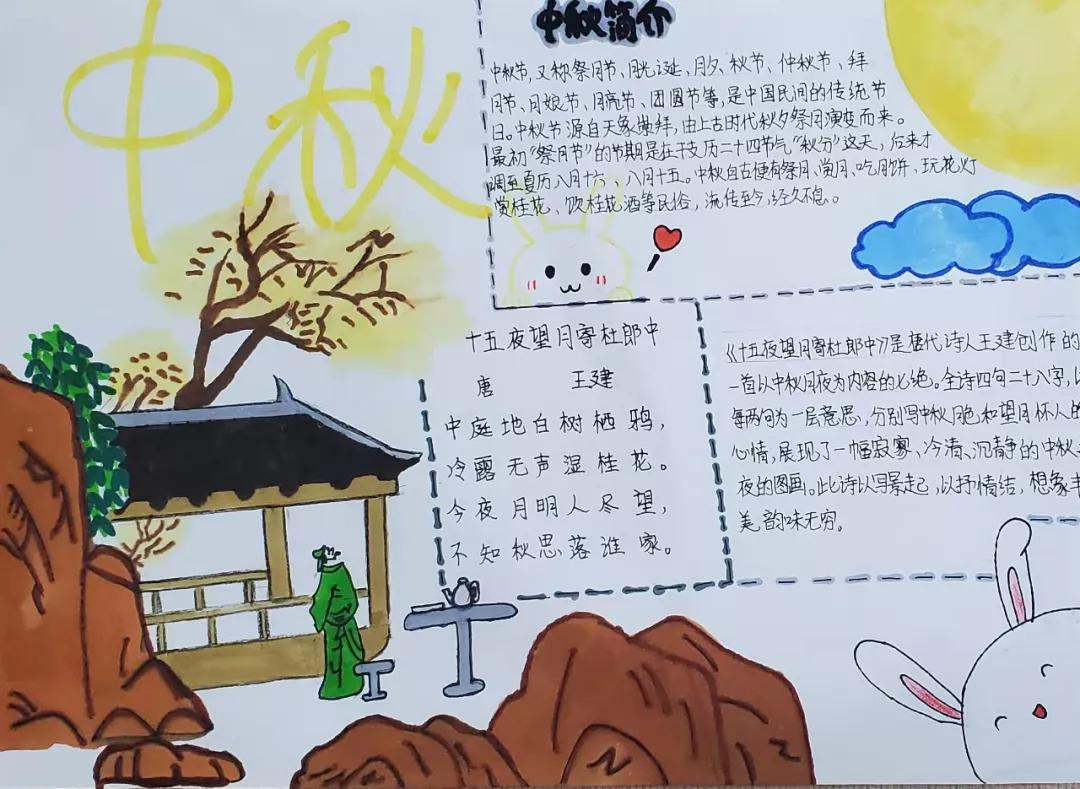 中秋
中秋简介
中秋节,又称祭月节、月光诞、月夕、秋节、仲秋节、拜
月节、月娘节、月亮节、团圆节等,是中国民间的传统节
日。中秋节源自天象崇拜,由上古时代秋夕祭月演变而来。
最初“祭月节”的节期是在干支历二十四节气“秋分”这天,后来才
调至夏历八月十六、八月十五。中秋自古便有祭月、赏月、吃月饼、玩花灯
赏桂花、饮桂花酒等民俗,流传至今,经久不息。
十五夜望月寄杜郎中
唐 王建
中庭地白树栖鸦,
冷露无声湿桂花。
今夜月明人尽望,
不知秋思落谁家。
《十五夜望月寄杜郎中》是唐代诗人王建创作的
一首以中秋月夜为内容的七绝。全诗四句二十八字,
每两句为一层意思,分别写中秋月色和望月怀人的
心情,展现了一幅寂寥、冷清、沉静的中秋
夜的图画。此诗以写景起,以抒情结,想象
美,韵味无穷。